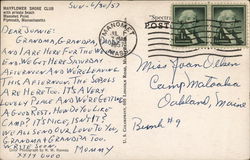 MAYFLOWER SHORE CLUB
with private beach
Mattapoisett, Massachusetts
SUN-6/30/57
DEAR JOANIE:
GRANDMA, GRANDPA,
AND I ARE HERE FOR THE WEEK
END. WE GOT HERE SATURDAY
AFTERNOON AND WE'RE LEAVING
THIS AFTERNOON. THE SEARS
ARE HERE TOO. IT'S A VERY
LOVELY PLACE AND WE'RE GETTING
A GOOD REST. HOW DO YOU LIKE
CAMP? IT'S NICE, ISN'T IT?
WE ALL SEND OUR LOVE TO YOU
GRANDMA + GRANDPA TOO.
WRITE SOON
MOMMY
XXXX
MAHOMET
JUL 1
1957
POSTAGE
Miss Joan Olken
Camp Matoaka
Oakland, Maine
Bunk #9